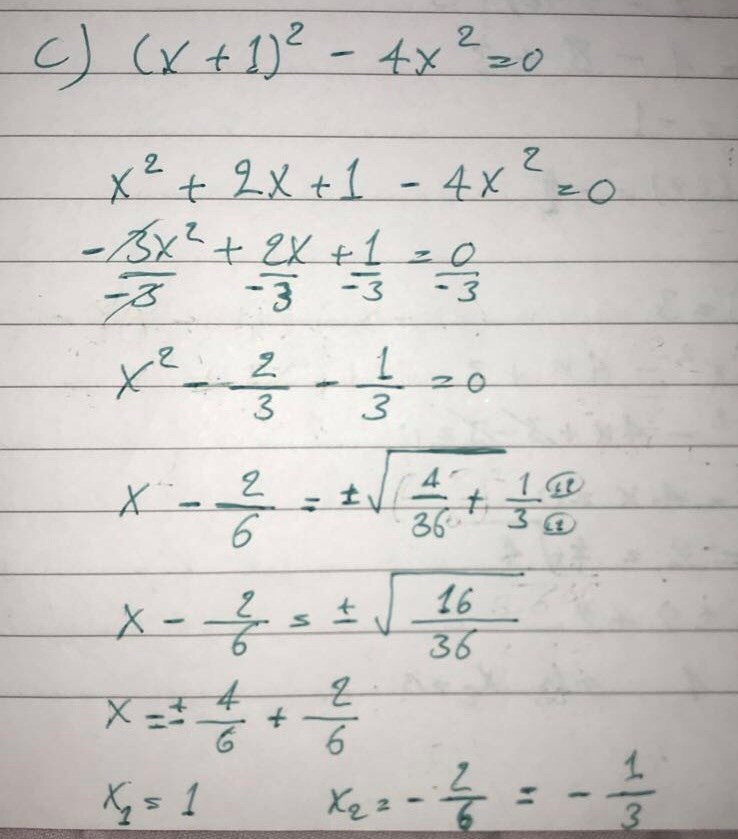 c) (x + 1)² - 4x² = 0
x² + 2x + 1 - 4x² = 0
-3x²/-3 + 2x/-3 + 1/-3 = 0/-3
x² - 2/3 - 1/3 = 0
x - 2/6 = ±√(4/36 + 1/3 (12)/(12))
x - 2/6 = ±√(16/36)
x = ± 4/6 + 2/6
x₁ = 1 x₂ = - 2/6 = - 1/3